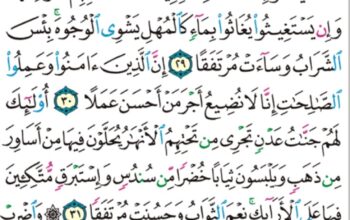 وَإِن يَسْتَغِيثُوا۟ يُغَاثُوا۟ بِمَآءٍ كَٱلْمُهْلِ يَشْوِى ٱلْوُجُوهَ ۚ بِئْسَ
ٱلشَّرَابُ وَسَآءَتْ مُرْتَفَقًا ۝٢٩ إِنَّ ٱلَّذِينَ ءَامَنُوا۟ وَعَمِلُوا۟
ٱلصَّٰلِحَٰتِ إِنَّا لَا نُضِيعُ أَجْرَ مَنْ أَحْسَنَ عَمَلًا ۝٣٠ أُو۟لَٰٓئِكَ
لَهُمْ جَنَّٰتُ عَدْنٍ تَجْرِى مِن تَحْتِهِمُ ٱلْأَنْهَٰرُ يُحَلَّوْنَ فِيهَا مِنْ أَسَاوِرَ
مِن ذَهَبٍ وَيَلْبَسُونَ ثِيَابًا خُضْرًا مِّن سُندُسٍ وَإِسْتَبْرَقٍ مُّتَّكِـِٔينَ
فِيهَا عَلَى ٱلْأَرَآئِكِ ۚ نِعْمَ ٱلثَّوَابُ وَحَسُنَتْ مُرْتَفَقًا ۝٣١ ۞ وَٱضْرِبْ